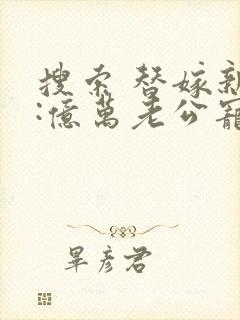 搜索 替嫁新
:億萬老公寵
畢彥君